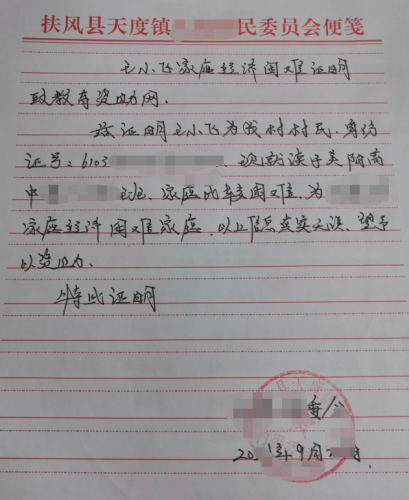 扶风县天度镇 民委员会便笺
王小飞家庭经济困难证明
致教育资助网、
兹证明王小飞为我村村民、身份
证号:6103 、现就读于美阳高
中 班、家庭比较困难、为
家庭经济困难家庭、以上信息真实无误、望予
以资助、
特此证明
委会
20 1年9月